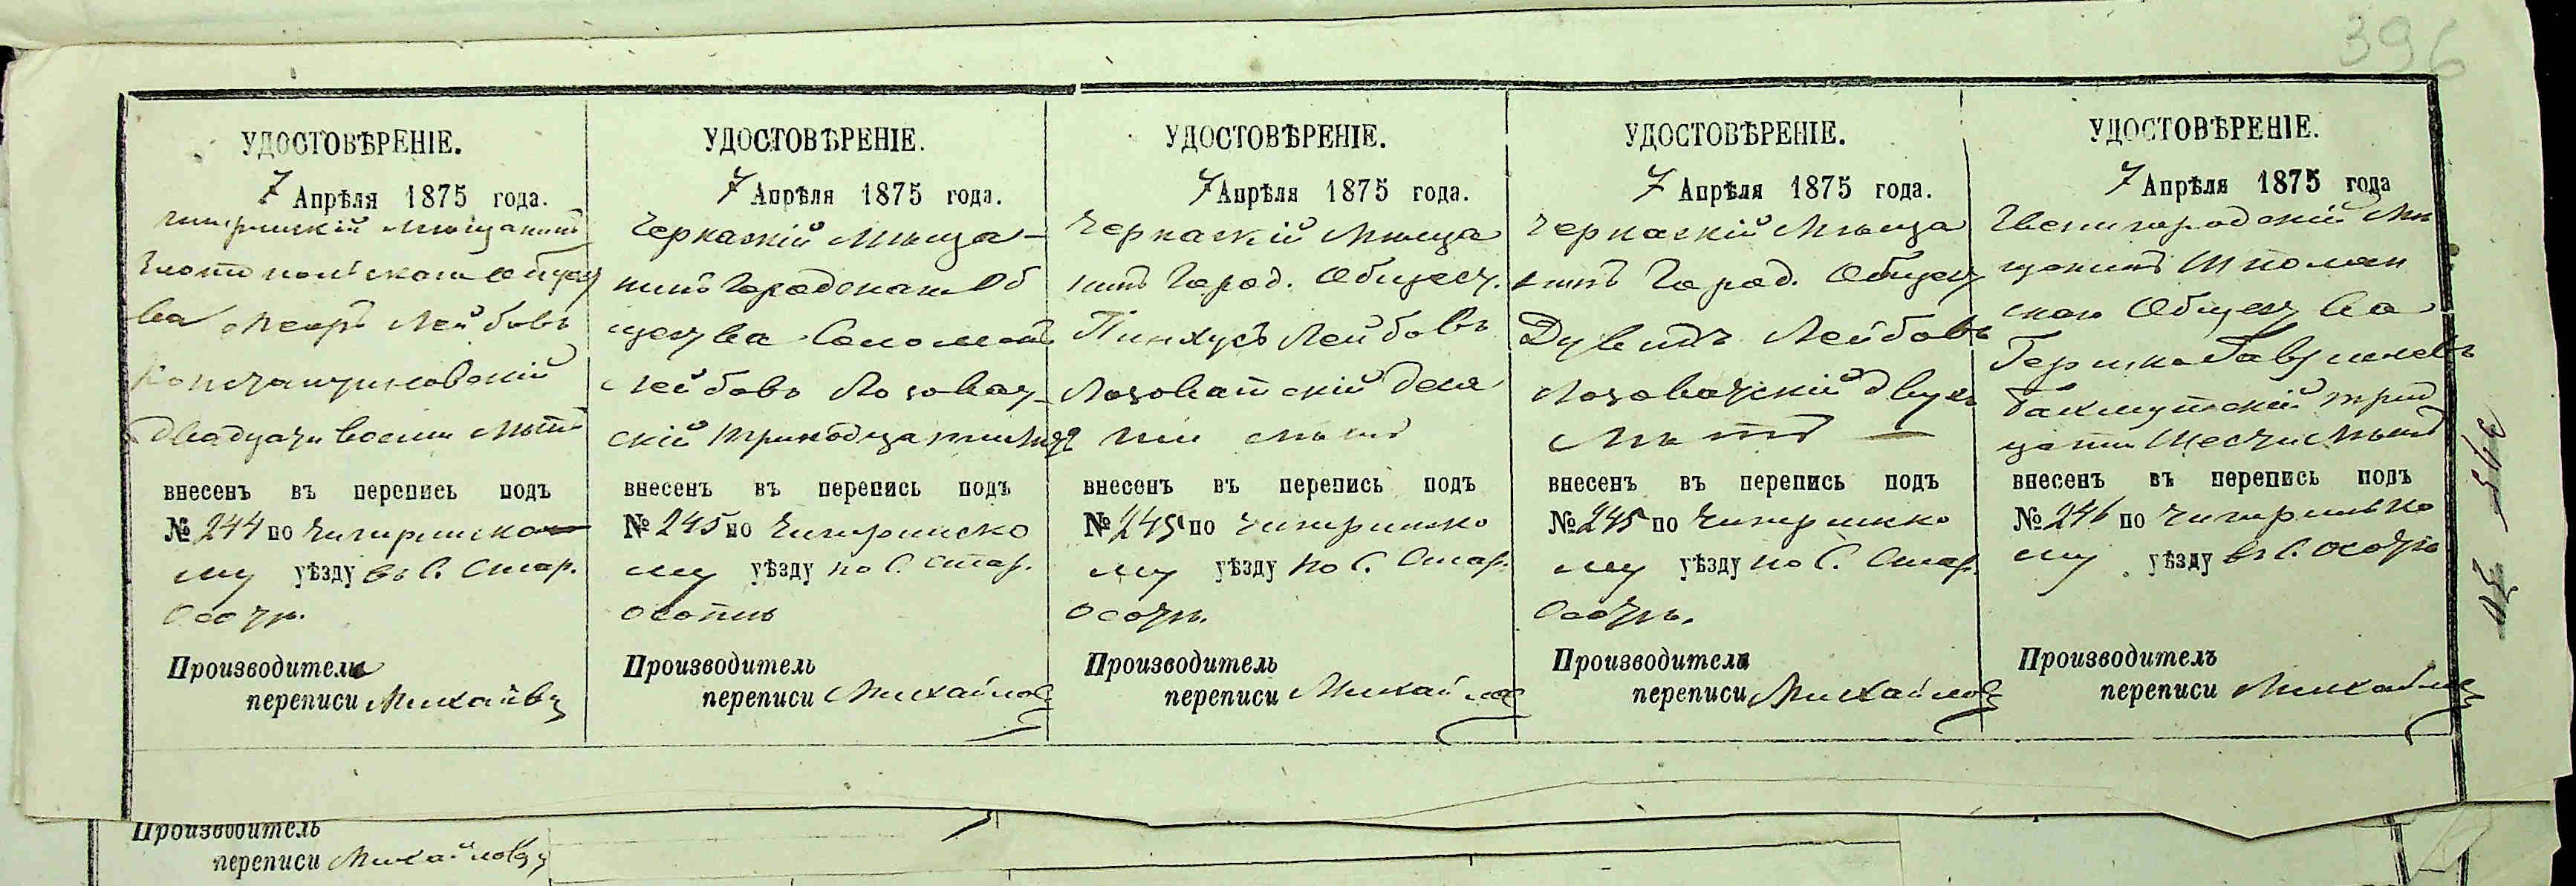 396
УДОСТОВѢРЕНІЕ.
7 Апрѣля 1875 года.
Чигринскій Мѣщанинъ
Златопольскаго Общест
ва Мееръ Лейбовъ
Константиновскій
двадцати восьми лѣтъ
внесенъ въ перепись подъ
№ 244 по Чигринско
му уѣзду въ С. Стар.
Осотѣ.
Производитель
переписи Михайловъ
УДОСТОВѢРЕНІЕ.
7 Апрѣля 1875 года.
Черкаскій Мѣща-
нинъ Городскаго Об
щества Соломонъ
Лейбовъ Лозоват-
скій тринадцати лѣтъ
внесенъ въ перепись подъ
№ 245 по Чигринско
му уѣзду по С. Стар.
Осотѣ
Производитель
переписи Михайловъ
УДОСТОВѢРЕНІЕ.
7 Апрѣля 1875 года.
Черкаскій Мѣща
нинъ Город. Общест.
Пинхусъ Лейбовъ
Лозоватскій деся
ти лѣтъ
внесенъ въ перепись подъ
№ 245 по Чигринско
му уѣзду по С. Стар.
Осотѣ.
Производитель
переписи Михайловъ
УДОСТОВѢРЕНІЕ.
7 Апрѣля 1875 года.
Черкаскій Мѣща
нинъ Город. Общест
Дувидъ Лейбовъ
Лозоватскій двухъ
лѣтъ
внесенъ въ перепись подъ
№ 245 по Чигринско
му уѣзду по С. Стар.
Осотѣ.
Производитель
переписи Михайловъ
УДОСТОВѢРЕНІЕ.
7 Апрѣля 1875 года
Звенигородскій Мѣ
щанинъ Шполян
скаго Общества
Гершко Гаврилевъ
Бахмутскій трид
цати шести лѣтъ
внесенъ въ перепись подъ
№ 246 по Чигринско
му уѣзду въ С. Осотѣ
Производитель
переписи Михайловъ
Производитель
переписи Михайловъ